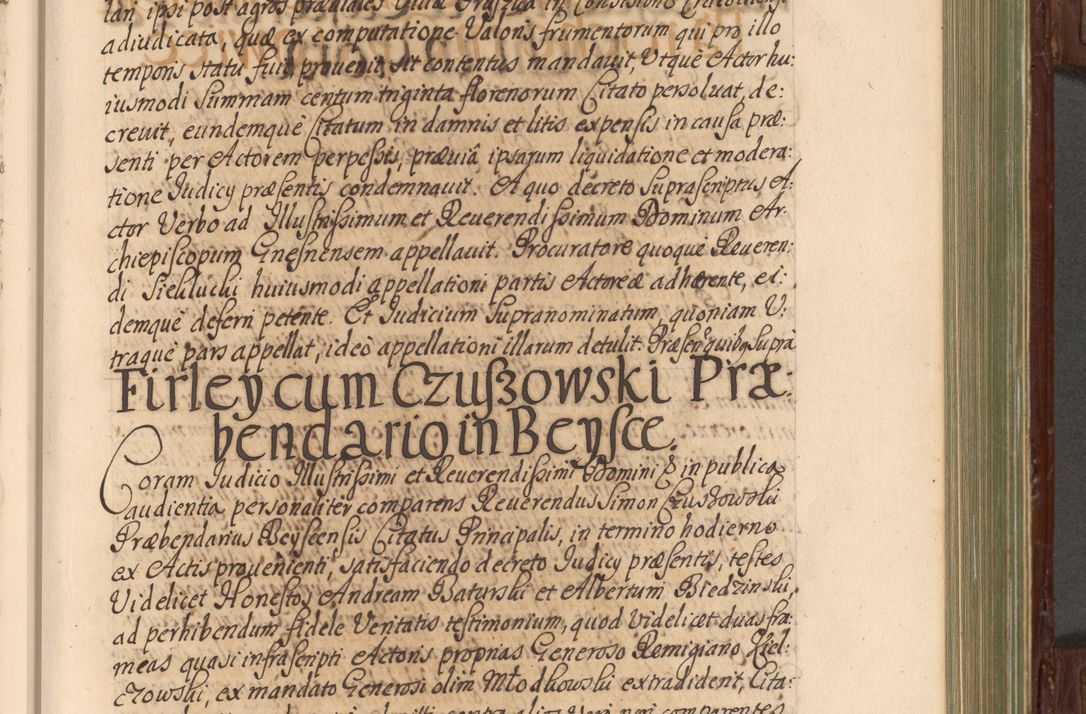 lari ipsi post agros prædiales
adiudicata, quæ ex computatione Valoris frumentorum qui pro illo
temporis statu fuit, provenit, sit contentus mandavit, Utque Actor hu:
iusmodi Summam centum triginta florenorum Citato persoluat, de:
creuit, eundemque Citatum in damnis et litis expensis in causa præ:
senti per Actorem perpessis, præuiâ ipsarum liquidatione et modera:
tione Iudicy præsentis condemnauit. A quo decreto Suprascriptus A:
ctor Verbo ad Illustrissimum et Reuerendissimum Dominum Ar:
chiepiscopum Gnesnensem appellauit. Procuratore quoque Reueren:
di Siekluchi huiusmodi appellationi partis Actoreæ adhærente, ei:
demque deferri petente. Et Iudicium Supranominatum, quoniam U:
traque pars appellat, ideo appellationi illarum detulit. Præsen quibq Supra
Firley cum Czuszowski Præ:
bendario in Beysce.
Coram Iudicio Illustrissimi et Reuerendissimi Domini & in publica
audientia personaliter comparens Reuerendus Simon Czuszowski
Præbendarius Beyscensis Citatus Principalis, in termino hodierno
ex Actis prouenienti, satisfaciendo decreto Iudicy præsentis, testes
Videlicet Honestos Andream Baturski et Albertum Biedzinski,
ad perhibendum fidele Veritatis testimonium, quod Videlicet duas fra:
meas quasi infrascripti Actoris proprias Generoso Remigiano Kiel:
czowski, ex mandato Generosi olim Młodkowski extradident, Cita:
comparentes